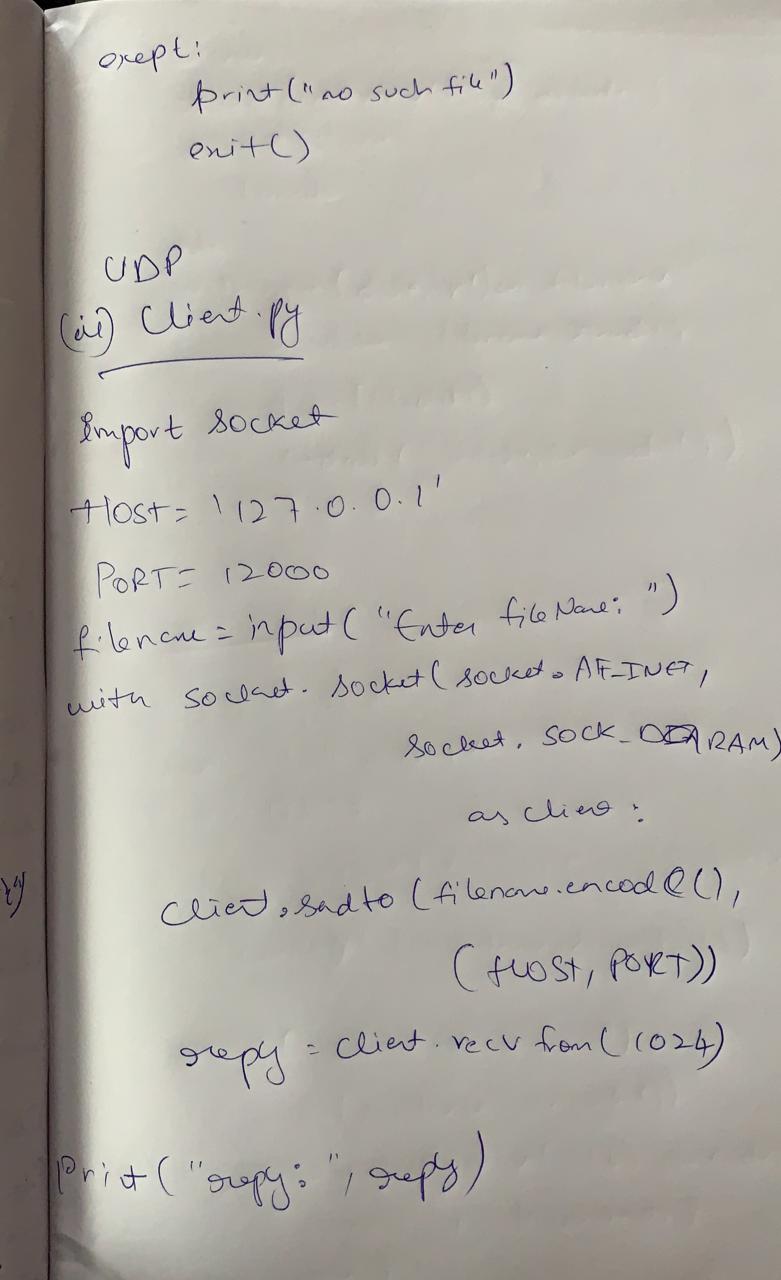 except:
print("no such file")
exit()
UDP
(ii) Client.py
import socket
HOST = '127.0.0.1'
PORT = 12000
filename = input("Enter fileName: ")
with socket.socket(socket.AF_INET,
socket.SOCK_DGRAM)
as client:
client.sendto(filename.encode(),
(HOST, PORT))
repy = client.recvfrom(1024)
print("repy: ", repy)